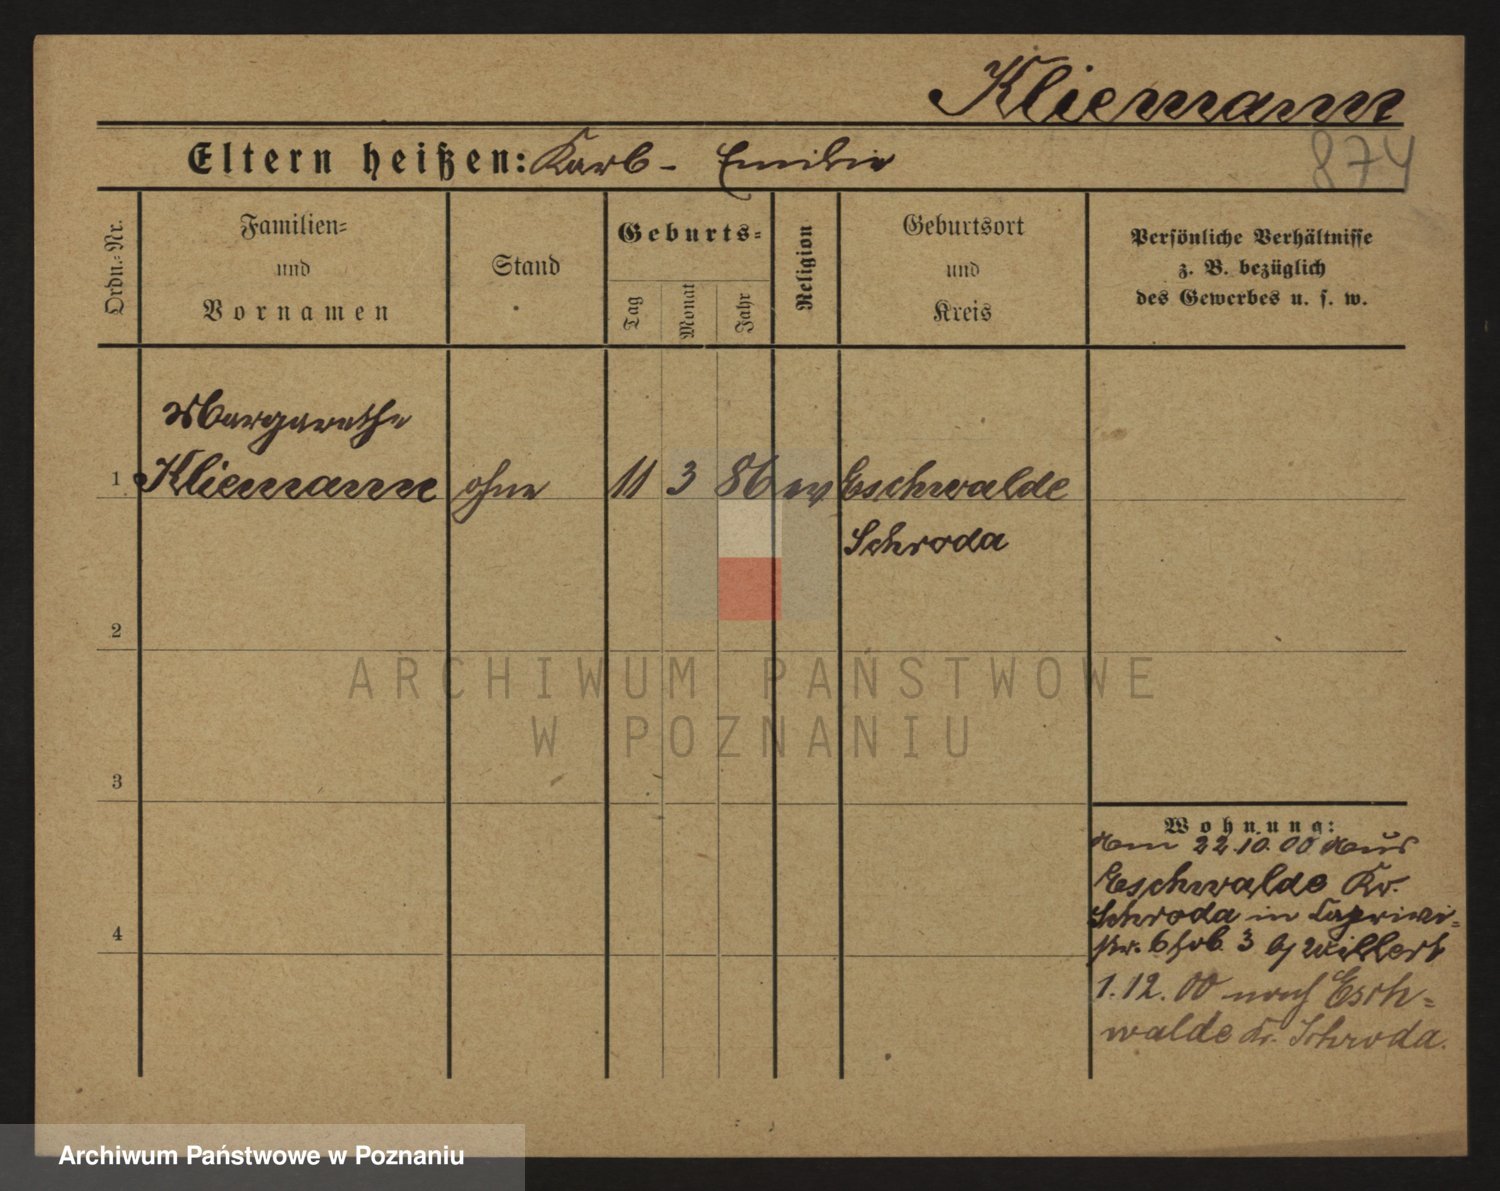 Kliemann
874
Eltern heißen: Karl - Emilie
Ordn.-Nr.
Familien-
und
Vornamen
Stand
Geburts-
Tag
Monat
Jahr
Religion
Geburtsort
und
Kreis
Persönliche Verhältnisse
z. B. bezüglich
des Gewerbes u. s. w.
Margarethe
1 Kliemann ohne 11 3 86 ev Eschwalde
Schroda
2
3
4
Wohnung:
22.10.00 aus
Eschwalde Kr.
Schroda in Caprivi-
str. 6 3 Willert
1.12.00 nach Esch-
walde Kr. Schroda.
ARCHIWUM PAŃSTWOWE
W POZNANIU
Archiwum Państwowe w Poznaniu